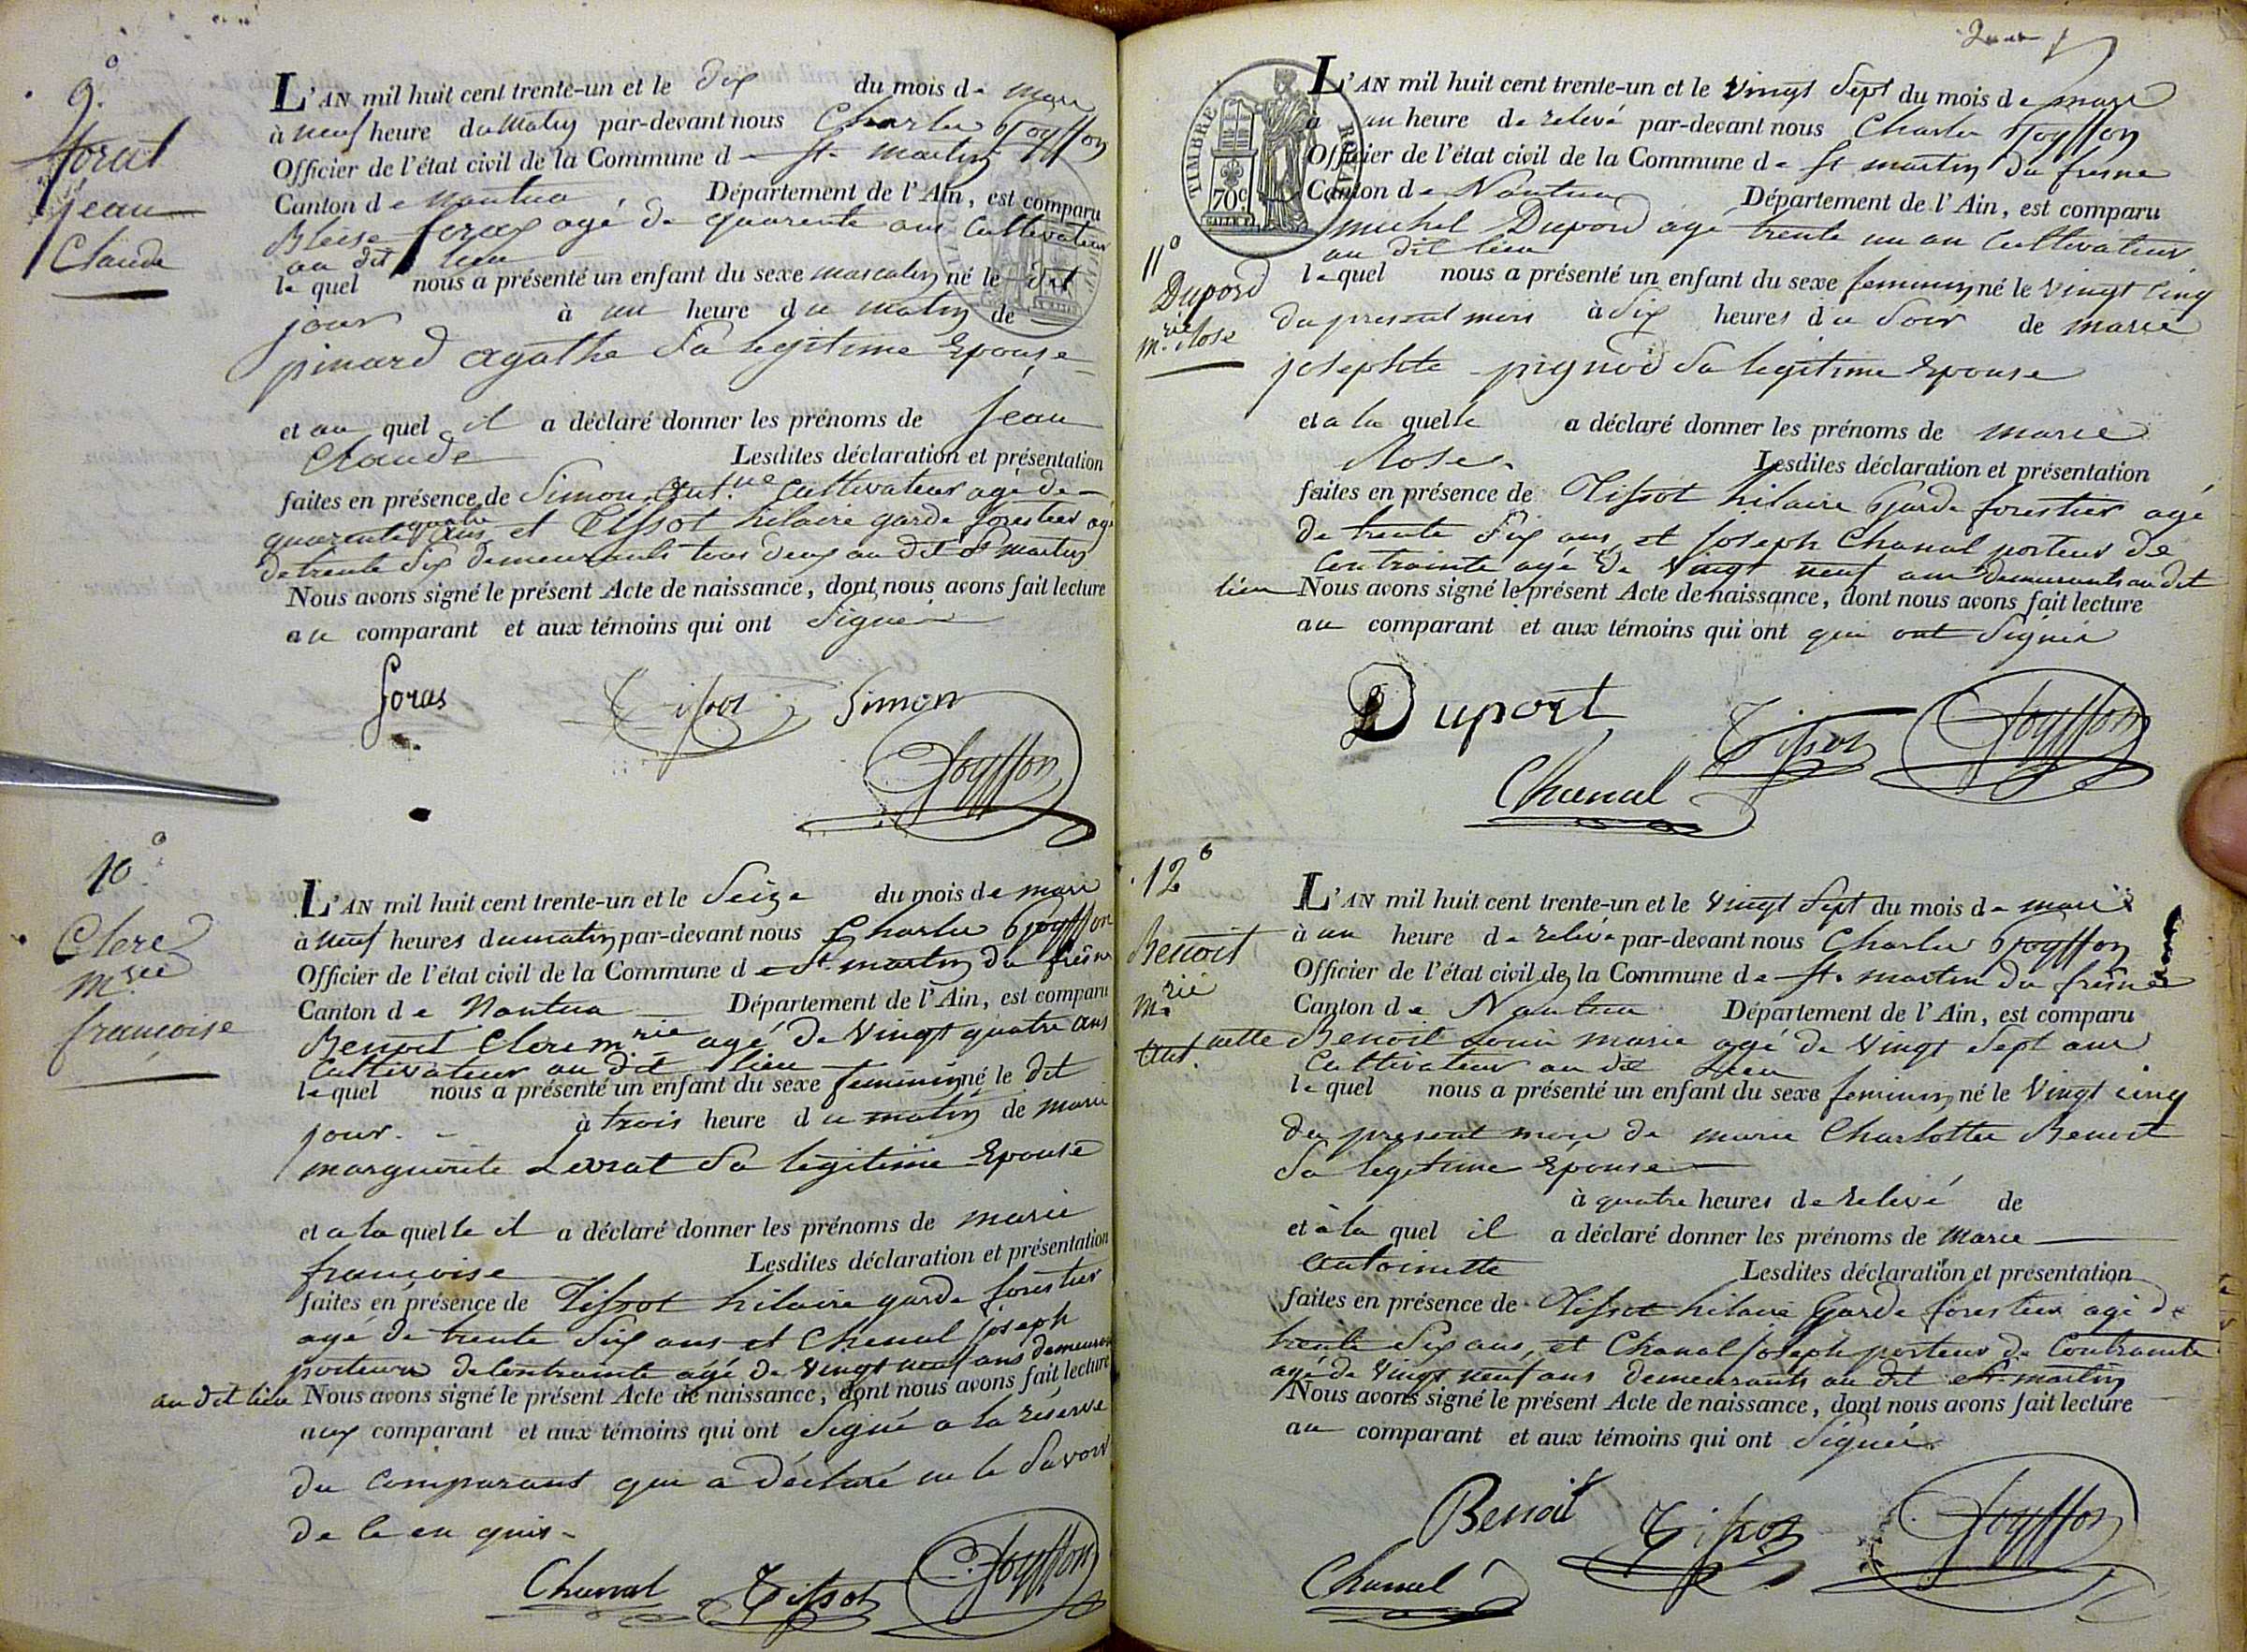 9°
forat
jean
Claude
L'AN mil huit cent trente-un et le dix du mois de mars
à neuf heure du matin par-devant nous Charles Goyffon
Officier de l'état civil de la Commune de St martin
Canton de Nantua Département de l'Ain, est comparu
Bleise foras agé de quarente ans Cultivateur
au dit lieu
lequel nous a présenté un enfant du sexe masculin né le dit
jour à un heure du matin de
pinard agathe Sa legitime Epouse
et au quel il a déclaré donner les prénoms de Jean
Claude Lesdites déclaration et présentation
faites en présence de Simon Ant.ne Cultivateur agé de
quarente quatre ans et Tissot hilaire garde forestier agé
de trente Six demeurants tous deux au dit St martin
Nous avons signé le présent Acte de naissance, dont nous avons fait lecture
au comparant et aux témoins qui ont Signé
foras Tissot Simon
Goyffon
10°
Clerc
m.rie
francoise
L'AN mil huit cent trente-un et le Seize du mois de mars
à neuf heures du matin par-devant nous Charles Goyffon
Officier de l'état civil de la Commune de St martin du frêne
Canton de Nantua Département de l'Ain, est comparu
Benoit Clerc m.rie agé de Vingt quatre ans
Cultivateur au dit lieu
lequel nous a présenté un enfant du sexe feminin né le dit
jour à trois heure du matin de marie
marguerite Levrat Sa légitime Epouse
et a la quelle il a déclaré donner les prénoms de marie
francoise Lesdites déclaration et présentation
faites en présence de Tissot hilaire garde forestier
agé de trente Six ans et Chanal joseph
porteur de Contrainte agé de Vingt neuf ans demeurant
au dit lieu Nous avons signé le présent Acte de naissance, dont nous avons fait lecture
aux comparant et aux témoins qui ont Signé a la réserve
du Comparant qui a déclaré ne le Savoir
de ce en quis
Chanal Tissot Goyffon
L'AN mil huit cent trente-un et le Vingt Sept du mois de mars
à un heure de relevé par-devant nous Charles Goyffon
Officier de l'état civil de la Commune de St martin du fresne
Canton de Nantua Département de l'Ain, est comparu
TIMBRE ROYAL
70c
GALLICE
11°
Dupord
m.rie Rose
michel Dupord agé trente un an Cultivateur
au dit lieu
lequel nous a présenté un enfant du sexe feminin né le Vingt Cinq
du present mois à Six heures du Soir de marie
josephte pignod Sa legitime Epouse
et a la quelle a déclaré donner les prénoms de marie
Rose Lesdites déclaration et présentation
faites en présence de Tissot hilaire Garde forestier agé
de trente Six ans, et Joseph Chanal porteur de
Contrainte agé de Vingt neuf ans demeurants au dit
lieu Nous avons signé le présent Acte de naissance, dont nous avons fait lecture
au comparant et aux témoins qui ont qui ont Signés
Duport Tissot Goyffon
Chanal
12°
Benoit
m.rie
Ant.nette
L'AN mil huit cent trente-un et le Vingt Sept du mois de mars
à un heure de relevé par-devant nous Charles Goyffon
Officier de l'état civil de la Commune de St martin du frêne
Canton de Nantua Département de l'Ain, est comparu
Benoit Louis marie agé de Vingt Sept ans
Cultivateur au dit Lieu
lequel nous a présenté un enfant du sexe feminin né le Vingt cinq
du present mois de marie Charlotte Benoit
Sa legitime Epouse
à quatre heures de relevé de
et à la quel il a déclaré donner les prénoms de Marie
Antoinette Lesdites déclaration et présentation
faites en présence de Tissot hilaire Garde forestier agé de
trente Six ans, et Chanal Joseph porteur de Contrainte
agé de Vingt neuf ans demeurants au dit St martin
Nous avons signé le présent Acte de naissance, dont nous avons fait lecture
au comparant et aux témoins qui ont Signés
Benoit Tissot Goyffon
Chanal